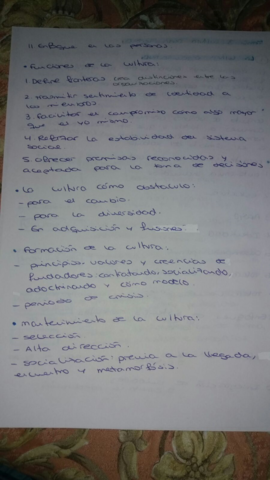 11. Enfoque a las personas
• Funciones de la cultura:
1. Define fronteras
organizaciones.
2. Transmitir sentimiento de identidad a
los miembros
3. Facilitar el compromiso como algo mayor
que el yo mismo
4. Reforzar la estabilidad del sistema
social.
5. ofrecer premisas reconocidas y
aceptadas para la toma de decisiones
• La cultura cómo obstáculo:
- para el cambio.
- para la diversidad.
- En adquisición y fusiones.
• Formación de la cultura:
- principios, valores y creencias de
fundadores: contratando, socializando,
adoctrinando y cómo modelo.
- periodo de crisis.
• Mantenimiento de la cultura:
- selección
- Alta dirección.
- socialización: previa a la llegada,
encuentro y metamorfosis.